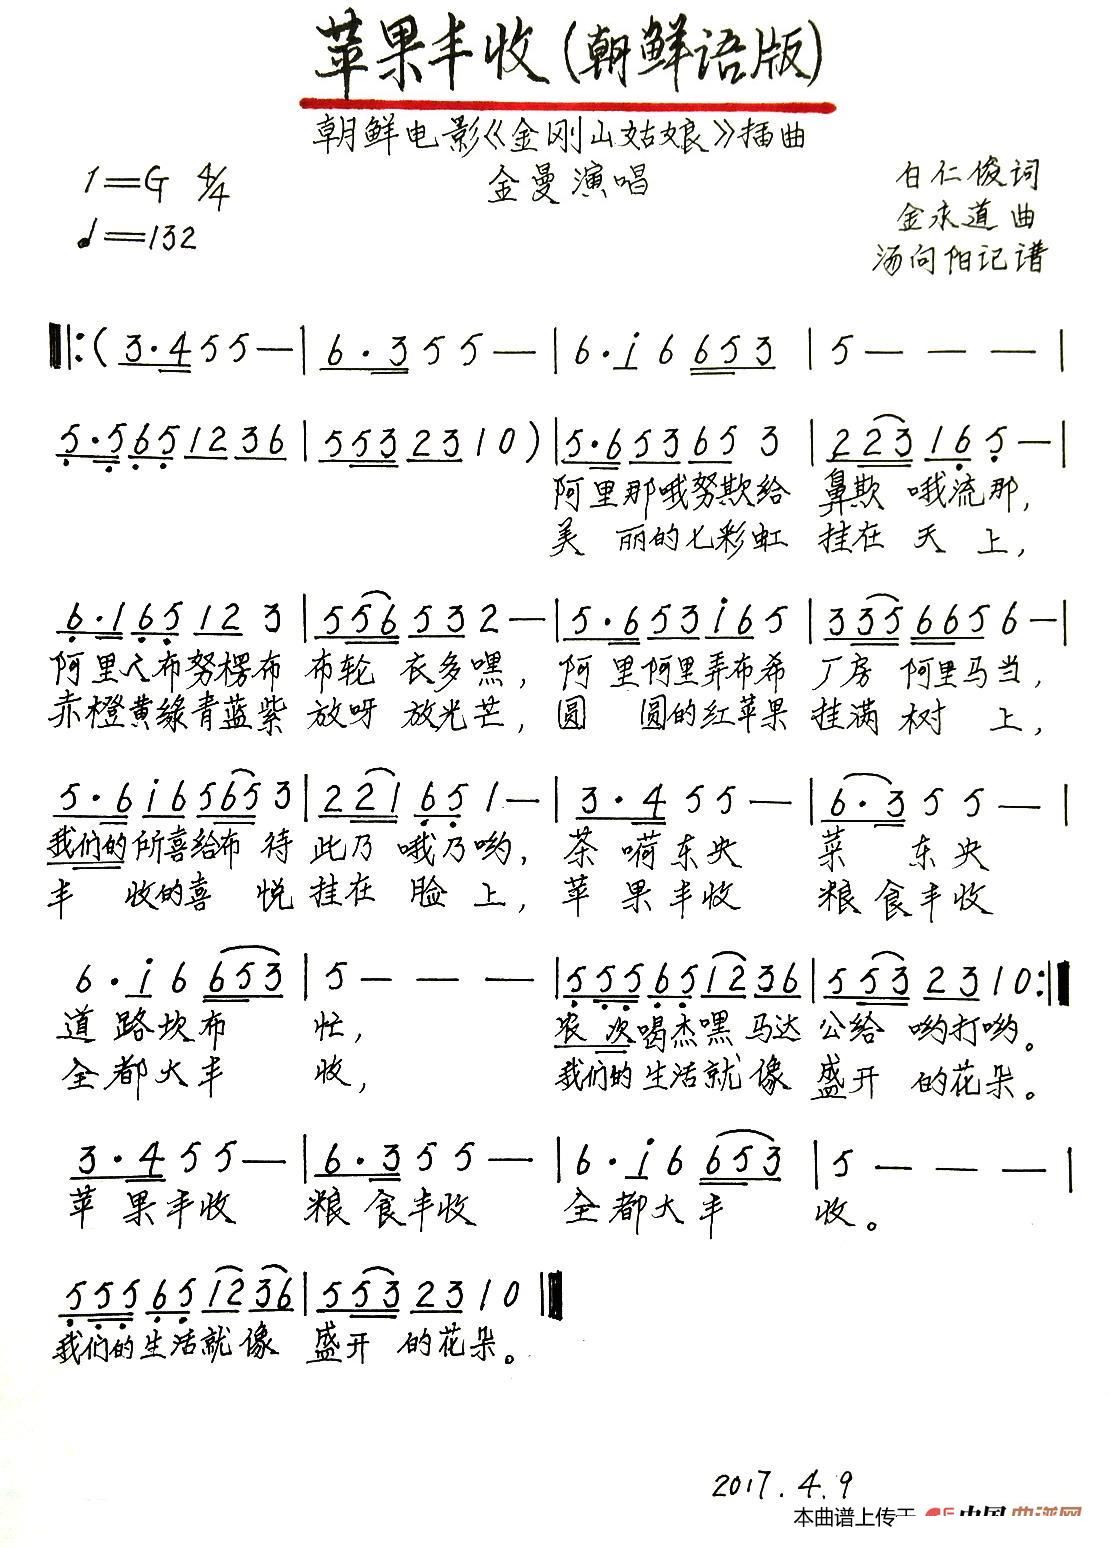 苹果丰收(朝鲜语版)
朝鲜电影《金刚山姑娘》插曲
1=G 4/4
金曼演唱
白仁俊词
♩=132
金永道曲
汤向阳记谱
‖:( 3·4 5 5 — | 6·3 5 5 — | 6·i 6 653 | 5 — — — |
5·565 12 36 | 553 23 1 0 ) | 5·6 53 65 3 | 223 16 5 — |
阿里那哦努欺给 鼻欺 哦流那,
美 丽的七彩虹 挂在 天 上,
6·1 65 12 3 | 556 53 2 — | 5·6 53 i6 5 | 335 665 6 — |
阿里人布努楞布 布轮 衣多嘿, 阿里阿里弄布希 厂房 阿里马当,
赤橙黄绿青蓝紫 放呀 放光芒, 圆 圆的红苹果 挂满 树 上,
5·6 i6 565 3 | 221 65 1 — | 3·4 5 5 — | 6·3 5 5 — |
我们的所喜给布 待 此乃 哦乃哟, 茶 嗬东央 菜 东央
丰 收的喜 悦 挂在 脸 上, 苹 果丰收 粮食丰收
6·i 6 653 | 5 — — — | 555 65 12 36 | 553 23 1 0 :‖
道 路坎布 忙, 农 次喝杰嘿 马达 公给 哟打哟。
全都大丰 收, 我们的生活就 像 盛开 的花朵。
3·4 5 5 — | 6·3 5 5 — | 6·i 6 653 | 5 — — — |
苹 果丰收 粮 食丰收 全都大丰 收。
555 65 12 36 | 553 23 1 0 ‖
我们的生活就 像 盛开 的花朵。
2017.4.9
本曲谱上传于 中国曲谱网